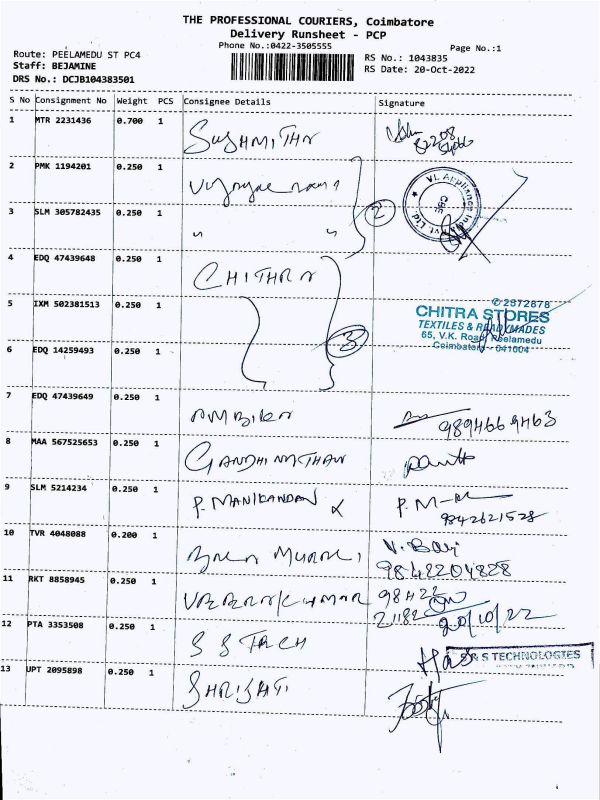 THE PROFESSIONAL COURIERS, Coimbatore
Delivery Runsheet - PCP
Phone No.:0422-3505555
Page No.:1
Route: PEELAMEDU ST PC4
Staff: BEJAMINE
DRS No.: DCJB104383501
RS No.: 1043835
RS Date: 20-Oct-2022
S No Consignment No Weight PCS Consignee Details Signature
1 MTR 2231436 0.700 1 SUSHMITHA
2 PMK 1194201 0.250 1
VL Appliance
CBE
3 SLM 305782435 0.250 1 " " 2
4 EDQ 47439648 0.250 1 CHITHRA
5 IXM 502381513 0.250 1
2572878
CHITRA STORES
TEXTILES & READYMADES
65, V.K. Road, Peelamedu
Coimbatore - 641004
3
6 EDQ 14259493 0.250 1
7 EDQ 47439649 0.250 1 AMBIKA 9894669463
8 MAA 567525653 0.250 1 GANDHIMATHAN
9 SLM 5214234 0.250 1 P. MANIKANDAN P. M
9842621528
10 TVR 4048088 0.200 1 BALA MURALI V. Bali
9842204828
11 RKT 8858945 0.250 1 VEERAKUMAR 98422
21182 20/10/22
12 PTA 3353508 0.250 1 S S TECH
S TECHNOLOGIES
13 UPT 2095898 0.250 1 SHRISHTI